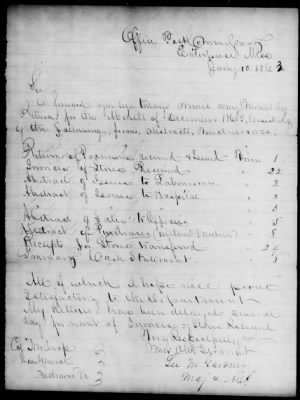 Office Post Commissary
Enterprise Miss
Jany 10 1863
Sir
I forward you by todays mail my Monthly
Returns for the Month of December 1862, Consisting
of the following, forms, abstracts, Vouchers &c.
Return of Provisions received & issued 1
Invoices of Stores Received 22
Abstract of Issues to Laborers 2
Abstract of Issues to Hospital 2
Abstract of Sales to Officers 5
Abstract of Purchases (without Vouchers) 8
Receipts for Stores Transferred 24
Summary & Cash Statement 1
All of which I hope will prove
Satisfactory to the department
My Returns has been delayed several
days for want of Invoices of Stores Received
Very Respectfully
Your Obt Servant
Maj & ACS
Richmond Va